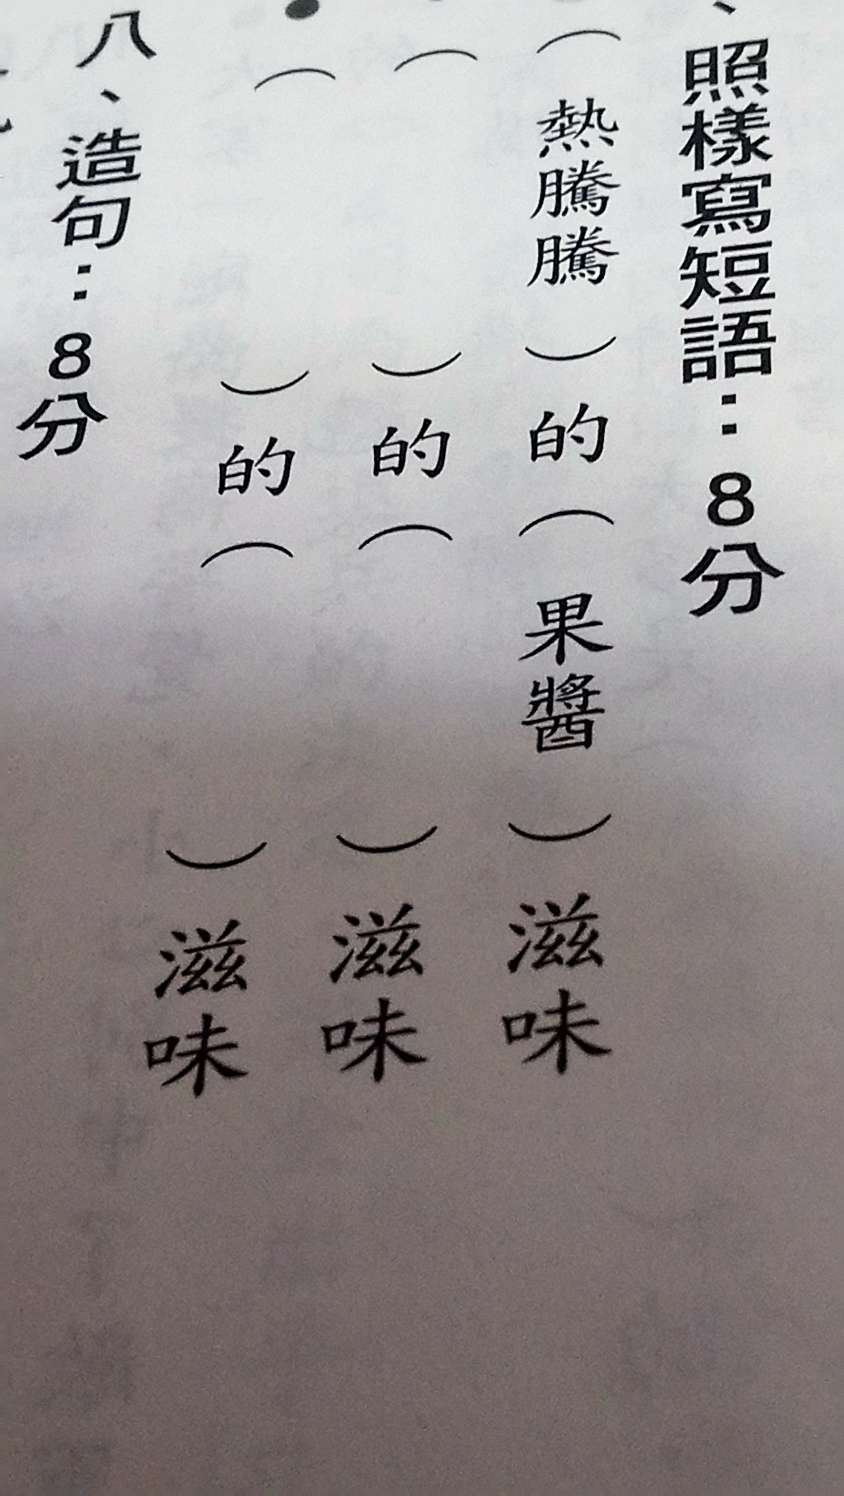 、照樣寫短語：8分
（熱騰騰）的（果醬）滋味
（　）的（　）滋味
（　）的（　）滋味
八、造句：8分